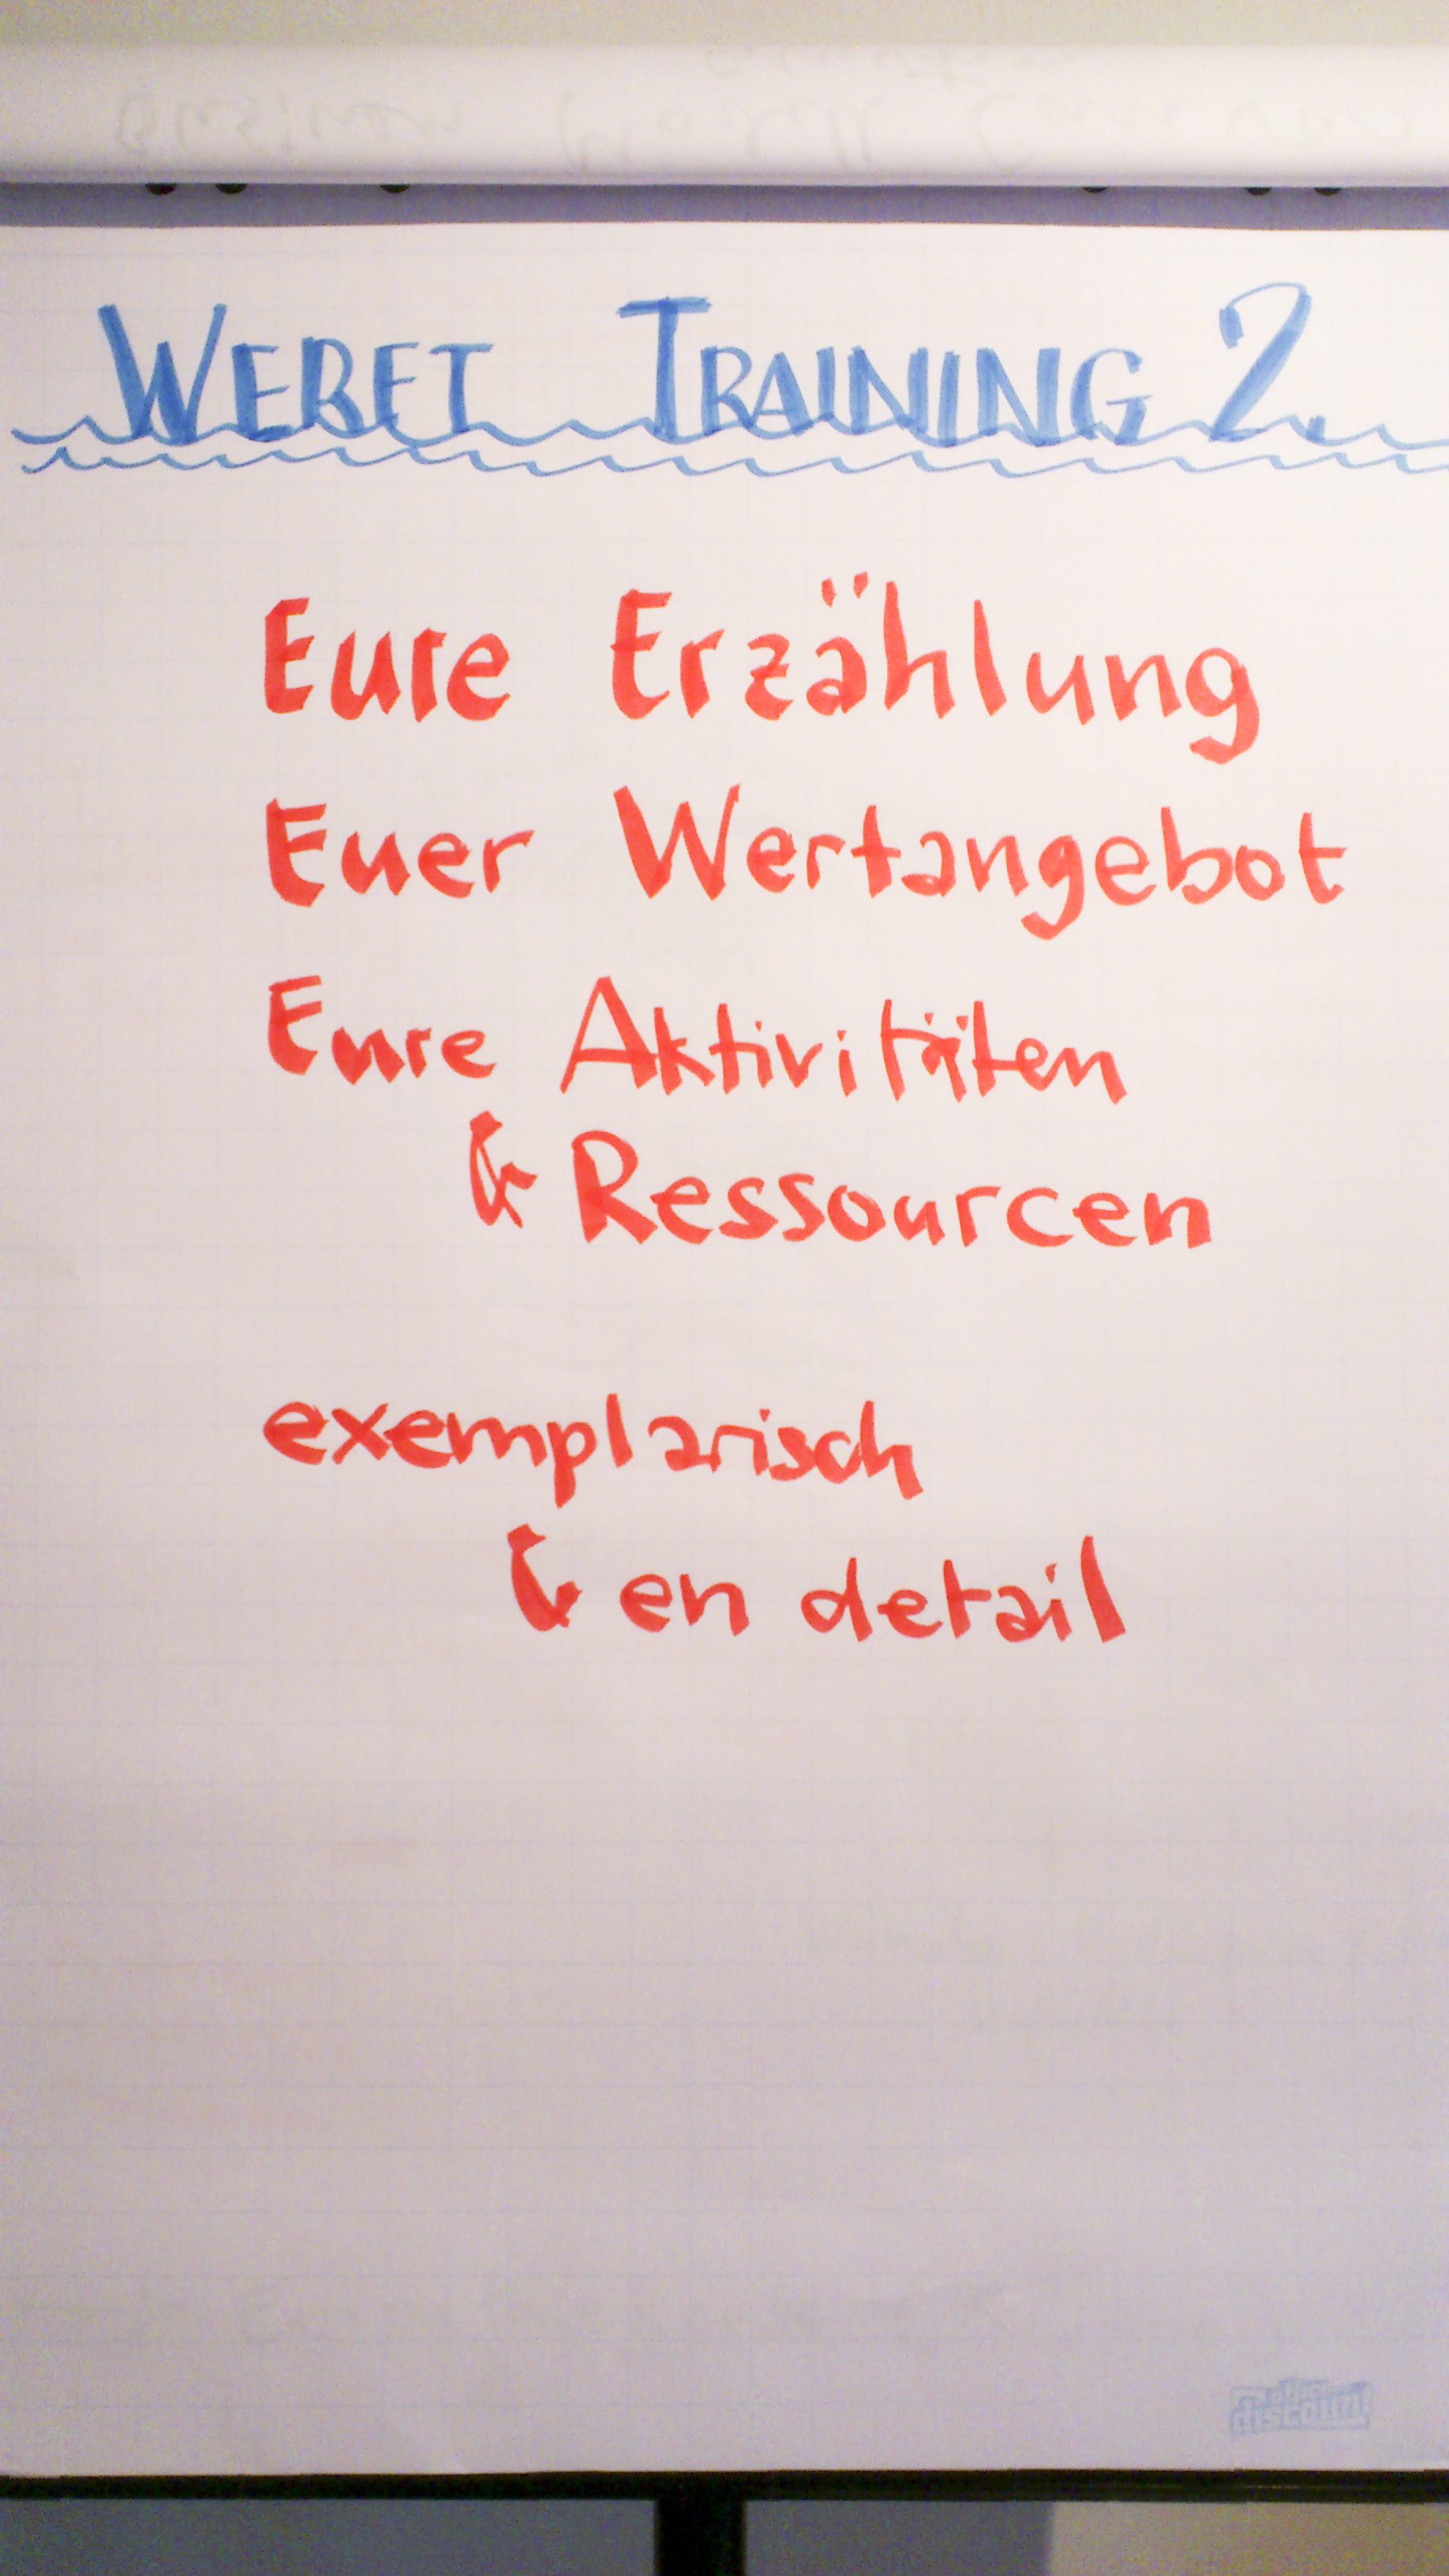 WEBET TRAINING 2.
Eure Erzählung
Euer Wertangebot
Eure Aktivitäten
& Ressourcen
exemplarisch
& en detail
discount